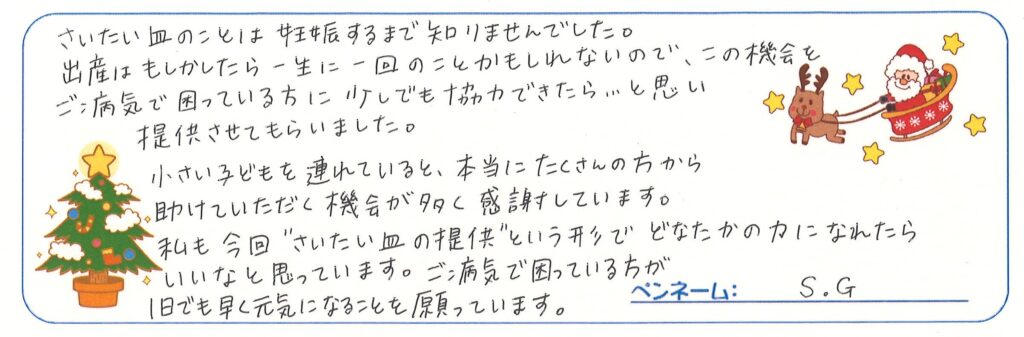 さいたい血のことは妊娠するまで知りませんでした。
出産はもしかしたら一生に一回のことかもしれないので、この機会を
ご病気で困っている方に少しでも協力できたら…と思い
提供させてもらいました。
小さい子どもを連れていると、本当にたくさんの方から
助けていただく機会が多く感謝しています。
私も今回"さいたい血の提供"という形でどなたかの力になれたら
いいなと思っています。ご病気で困っている方が
1日でも早く元気になることを願っています。
ペンネーム: S.G